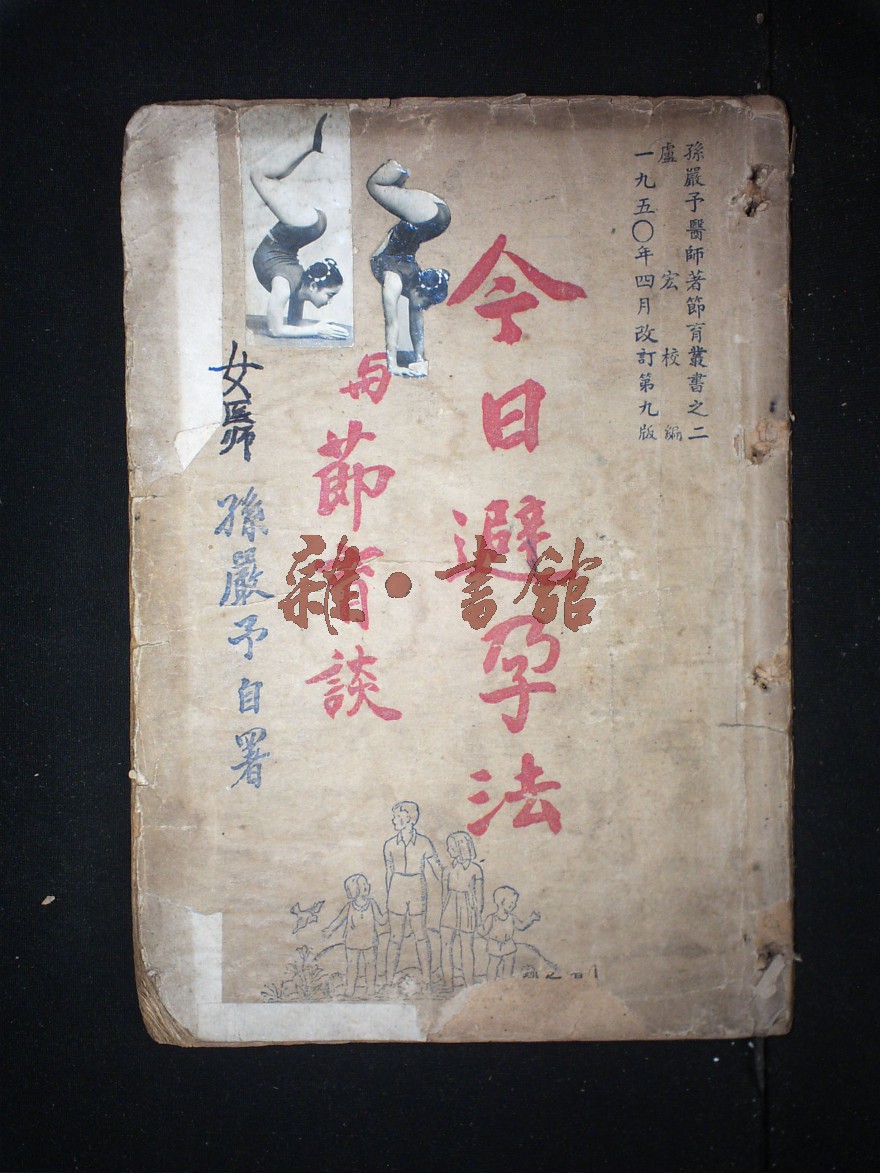 孫嚴予醫師著節育叢書之二
盧宏校編
一九五〇年四月改訂第九版
今日避孕法
與節育談
女醫師 孫嚴予自署
雜·書館